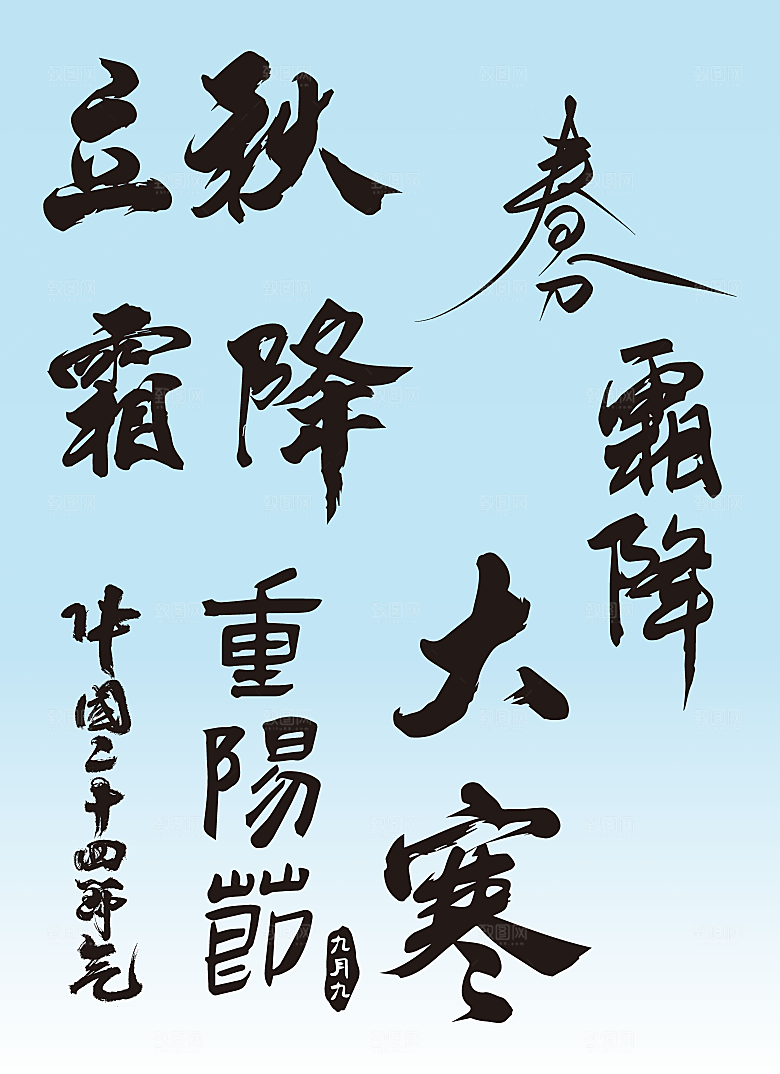 立秋
春分
霜降
霜降
中國二十四節气
重陽節
九月九
大寒